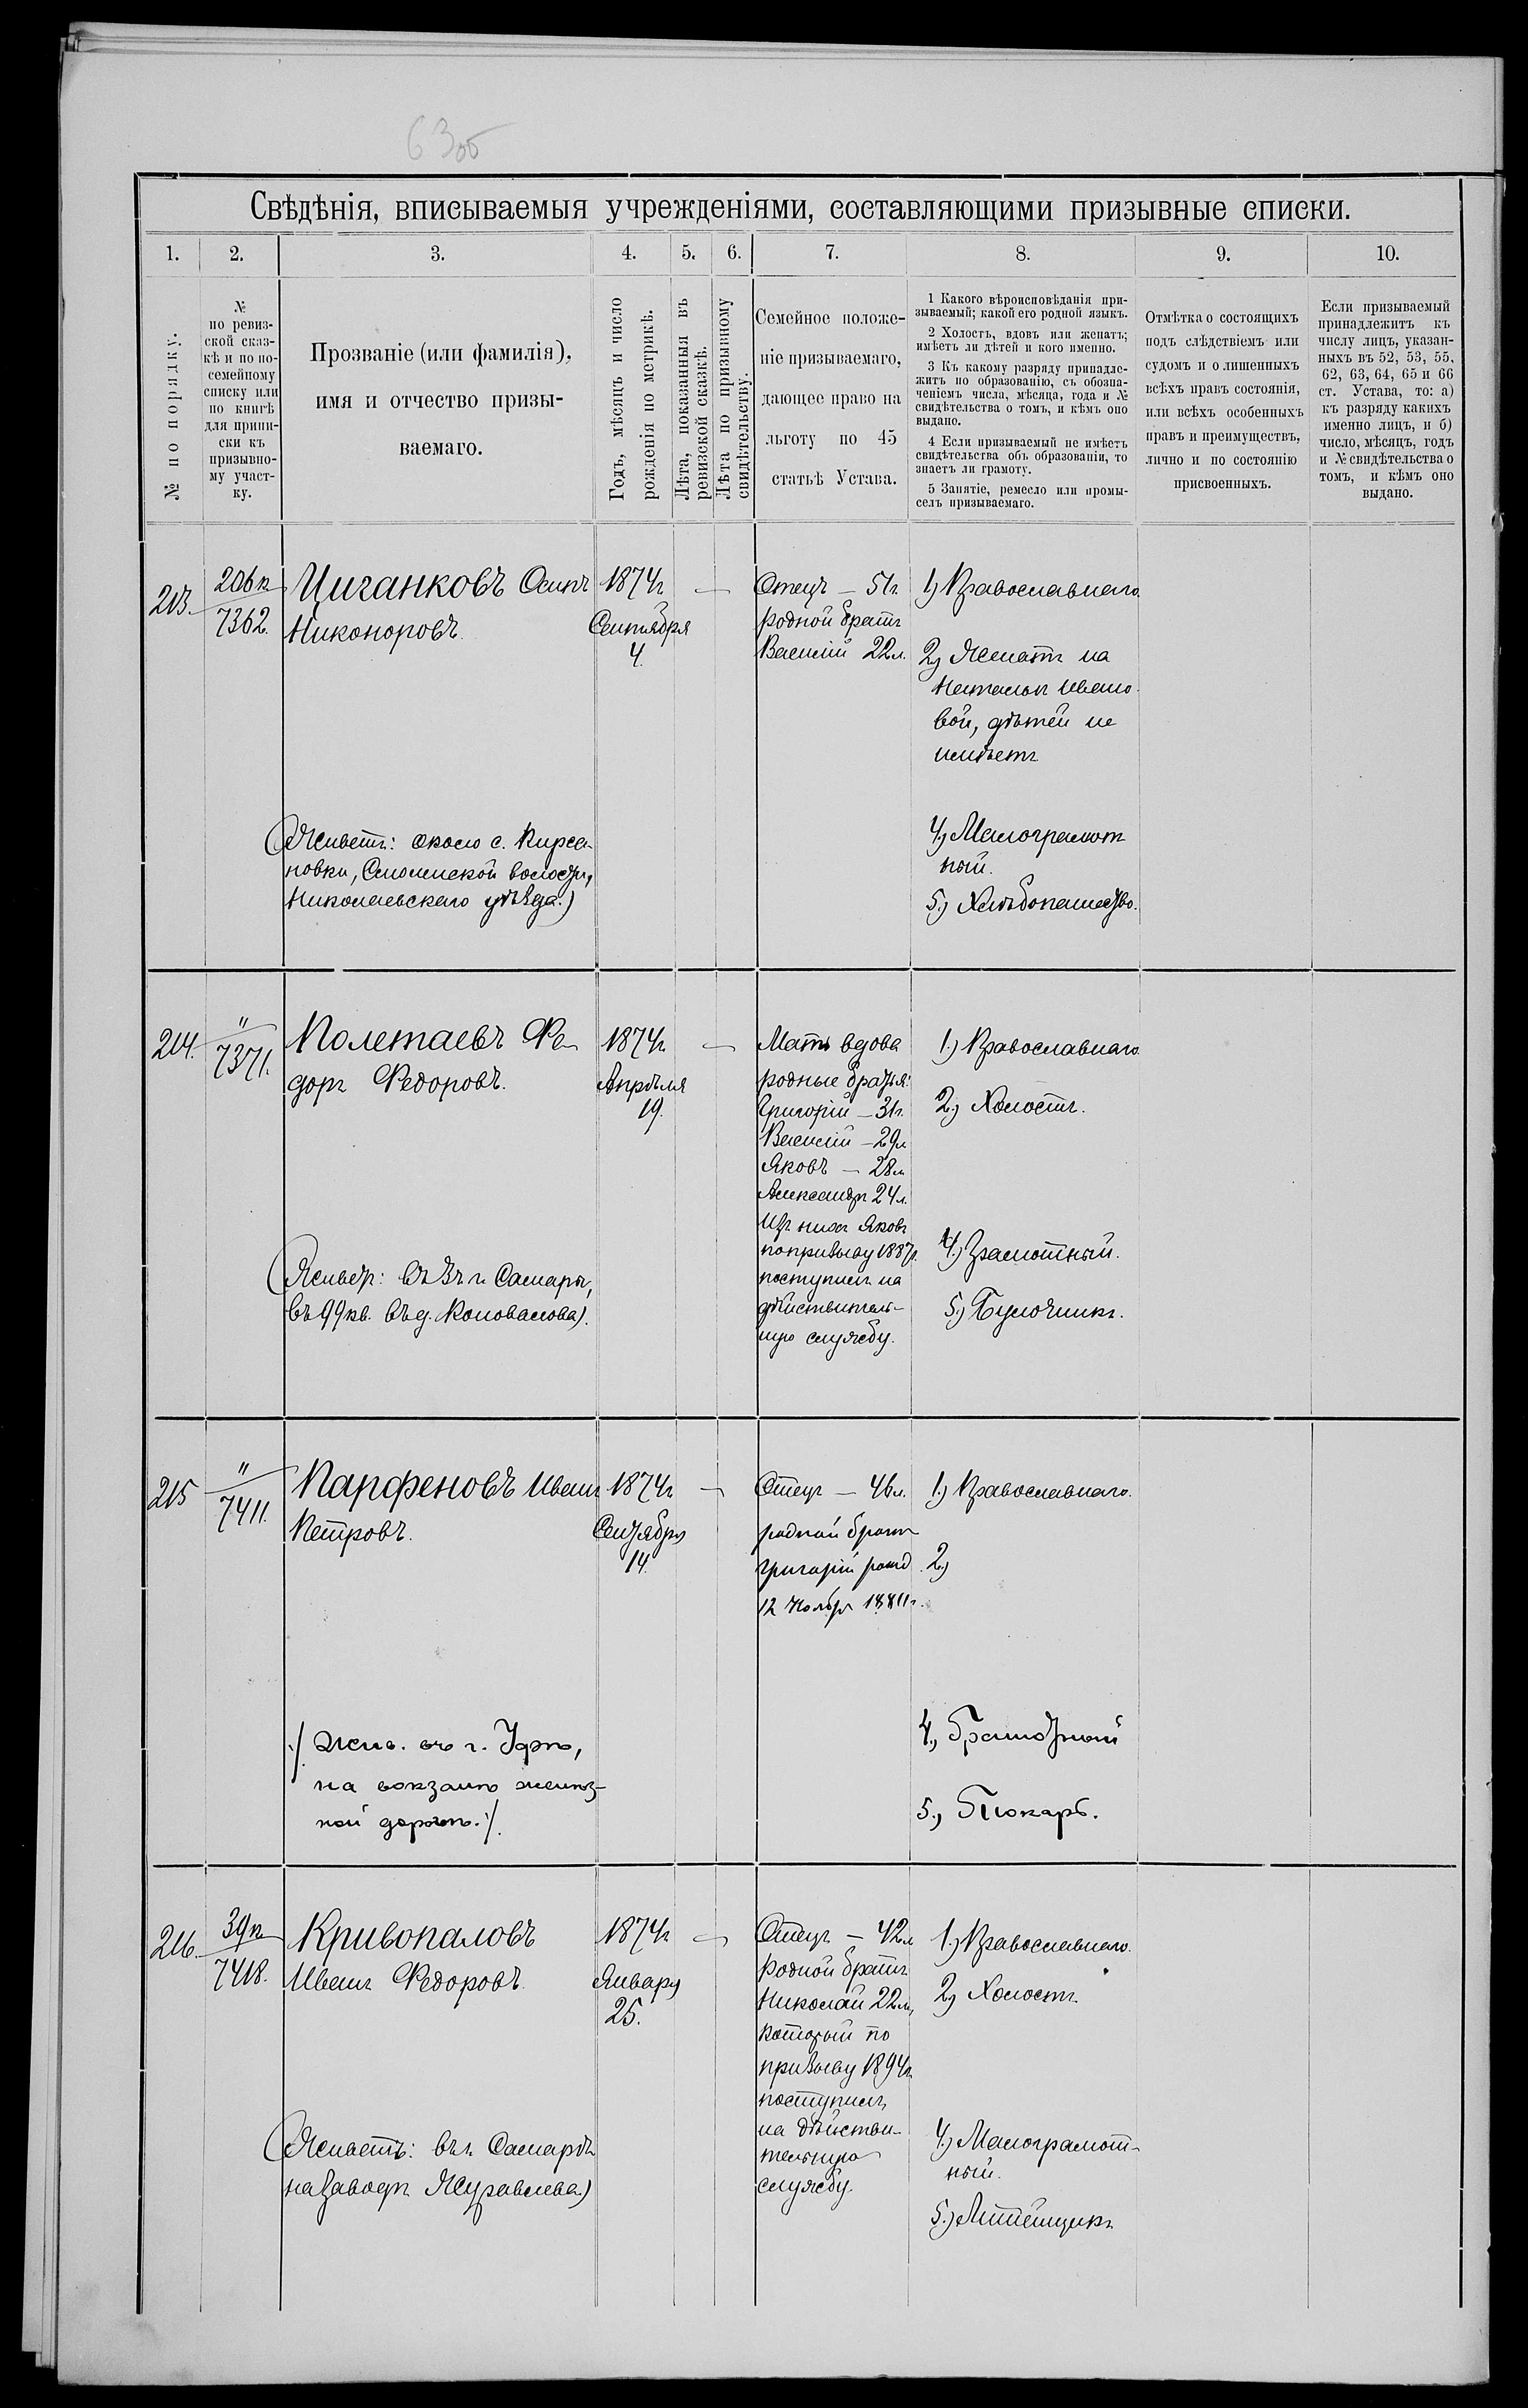 63об
Свѣдѣнія, вписываемыя учрежденіями, составляющими призывные списки.
1.
2.
3.
4.
5.
6.
7.
8.
9.
10.
№ по порядку.
№
по ревиз-
ской сказ-
кѣ и по по-
семейному
списку или
по книгѣ
для припи-
ски къ
призывно-
му участ-
ку.
Прозваніе (или фамилія),
имя и отчество призы-
ваемаго.
Годъ, мѣсяцъ и число
рожденія по метрикѣ.
Лѣта, показанныя въ
ревизской сказкѣ.
Лѣта по призывному
свидѣтельству.
Семейное положе-
ніе призываемаго,
дающее право на
льготу по 45
статьѣ Устава.
1 Какого вѣроисповѣданія при-
зываемый; какой его родной языкъ.
2 Холостъ, вдовъ или женатъ;
имѣетъ ли дѣтей и кого именно.
3 Къ какому разряду принадле-
житъ по образованію, съ обозна-
ченіемъ числа, мѣсяца, года и №
свидѣтельства о томъ, и кѣмъ оно
выдано.
4 Если призываемый не имѣетъ
свидѣтельства объ образованіи, то
знаетъ ли грамоту.
5 Занятіе, ремесло или промы-
селъ призываемаго.
Отмѣтка о состоящихъ
подъ слѣдствіемъ или
судомъ и о лишенныхъ
всѣхъ правъ состоянія,
или всѣхъ особенныхъ
правъ и преимуществъ,
лично и по состоянію
присвоенныхъ.
Если призываемый
принадлежитъ къ
числу лицъ, указан-
ныхъ въ 52, 53, 55,
62, 63, 64, 65 и 66
ст. Устава, то: а)
къ разряду какихъ
именно лицъ, и б)
число, мѣсяцъ, годъ
и № свидѣтельства о
томъ, и кѣмъ оно
выдано.
213.
206п
7362.
Циганковъ Осипъ
Никоноровъ.
1874г.
Сентября
4.
Отецъ — 51г.
родной братъ
Василій 22л.
1) Православнаго.
2) Женатъ на
Натальи Ивано-
вой, дѣтей не
имѣетъ
4.) Малограмот
ный.
5.) Хлѣбопашество.
(Живетъ: около с. Кирса-
новки, волости,
Николаевскаго уѣзда.)
214.
"
7371.
Полетаевъ Фе-
доръ Федоровъ.
1874г.
Апрѣля
19.
Мать вдова
родные братья:
Григорій — 31г.
Василій — 29л.
Яковъ — 28л.
Александръ 24л.
Изъ нихъ Яковъ
по призыву 1887г.
поступилъ на
дѣйствитель-
ную службу.
1.) Православнаго.
2.) Холостъ.
4.) Грамотный.
5.) Булочникъ.
(Живетъ: въ г. Самары,
въ 99 кв. въ д. Коновалова).
215
"
7411.
Парфеновъ Иванъ
Петровъ.
1874г.
Сентября
14.
Отецъ — 46л.
родной братъ
Григорій рожд.
12 Ноября 1881г.
1.) Православнаго.
2.)
4., Грамотный
5., Пекарь.
/: жив. въ г. Уфѣ,
на вокзалѣ желѣз-
ной дороги. :/
216.
39п
7418.
Кривопаловъ
Иванъ Федоровъ.
1874г.
Января
25.
Отецъ — 42л.
родной братъ
Николай 22л.,
который по
призыву 1894г.
поступилъ
на дѣйстви-
тельную
службу.
1.) Православнаго.
2.) Холостъ.
4.) Малограмот-
ный.
5.) Литейщикъ.
(Живетъ: въ г. Самарѣ
на заводѣ Журавлева.)